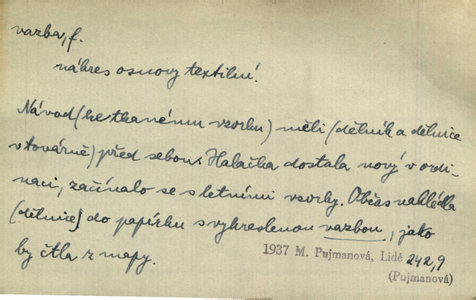 vazba, f.
nákres osnovy textilní.
Návod (ke tkanému vzorku) měli (dělník a dělnice
v továrně) před sebou. Halačka dostala nový v ordi-
naci, začínalo se s letními vzorky. Občas nahlédla
(dělnice) do papírku s vykreslenou vazbou, jako
by četla z mapy.
1937 M. Pujmanová, Lidé 242,9
(Pujmanová)